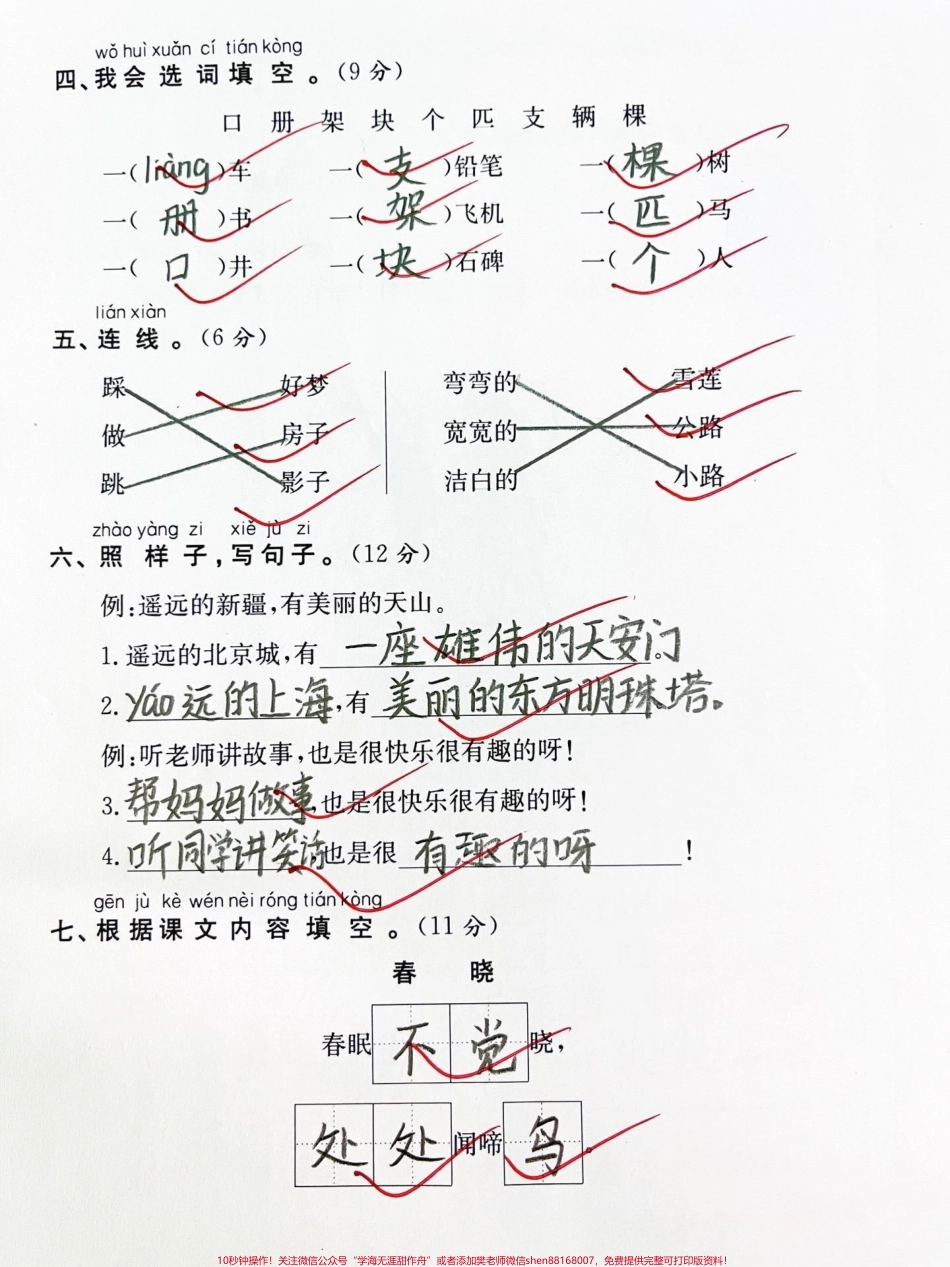 wǒ huì xuǎn cí tián kòng
四、我会选词填空。（9分）
口 册 架 块 个 匹 支 辆 棵
一（liàng）车 一（支）铅笔 一（棵）树
一（册）书 一（架）飞机 一（匹）马
一（口）井 一（块）石碑 一（个）人
lián xiàn
五、连线。（6分）
踩 好梦 弯弯的 雪莲
做 房子 宽宽的 公路
跳 影子 洁白的 小路
zhào yàng zi xiě jù zi
六、照样子，写句子。（12分）
例：遥远的新疆，有美丽的天山。
1. 遥远的北京城，有一座雄伟的天安门
2. yáo远的上海，有美丽的东方明珠塔。
例：听老师讲故事，也是很快乐很有趣的呀！
3. 帮妈妈做事，也是很快乐很有趣的呀！
4. 听同学讲笑话，也是很有趣的呀！
gēn jù kè wén nèi róng tián kòng
七、根据课文内容填空。（11分）
春 晓
春眠不觉晓，
处处闻啼鸟。
10秒钟操作！关注微信公众号“学海无涯甜作舟”或者添加樊老师微信shen88168007，免费提供完整可打印版资料！